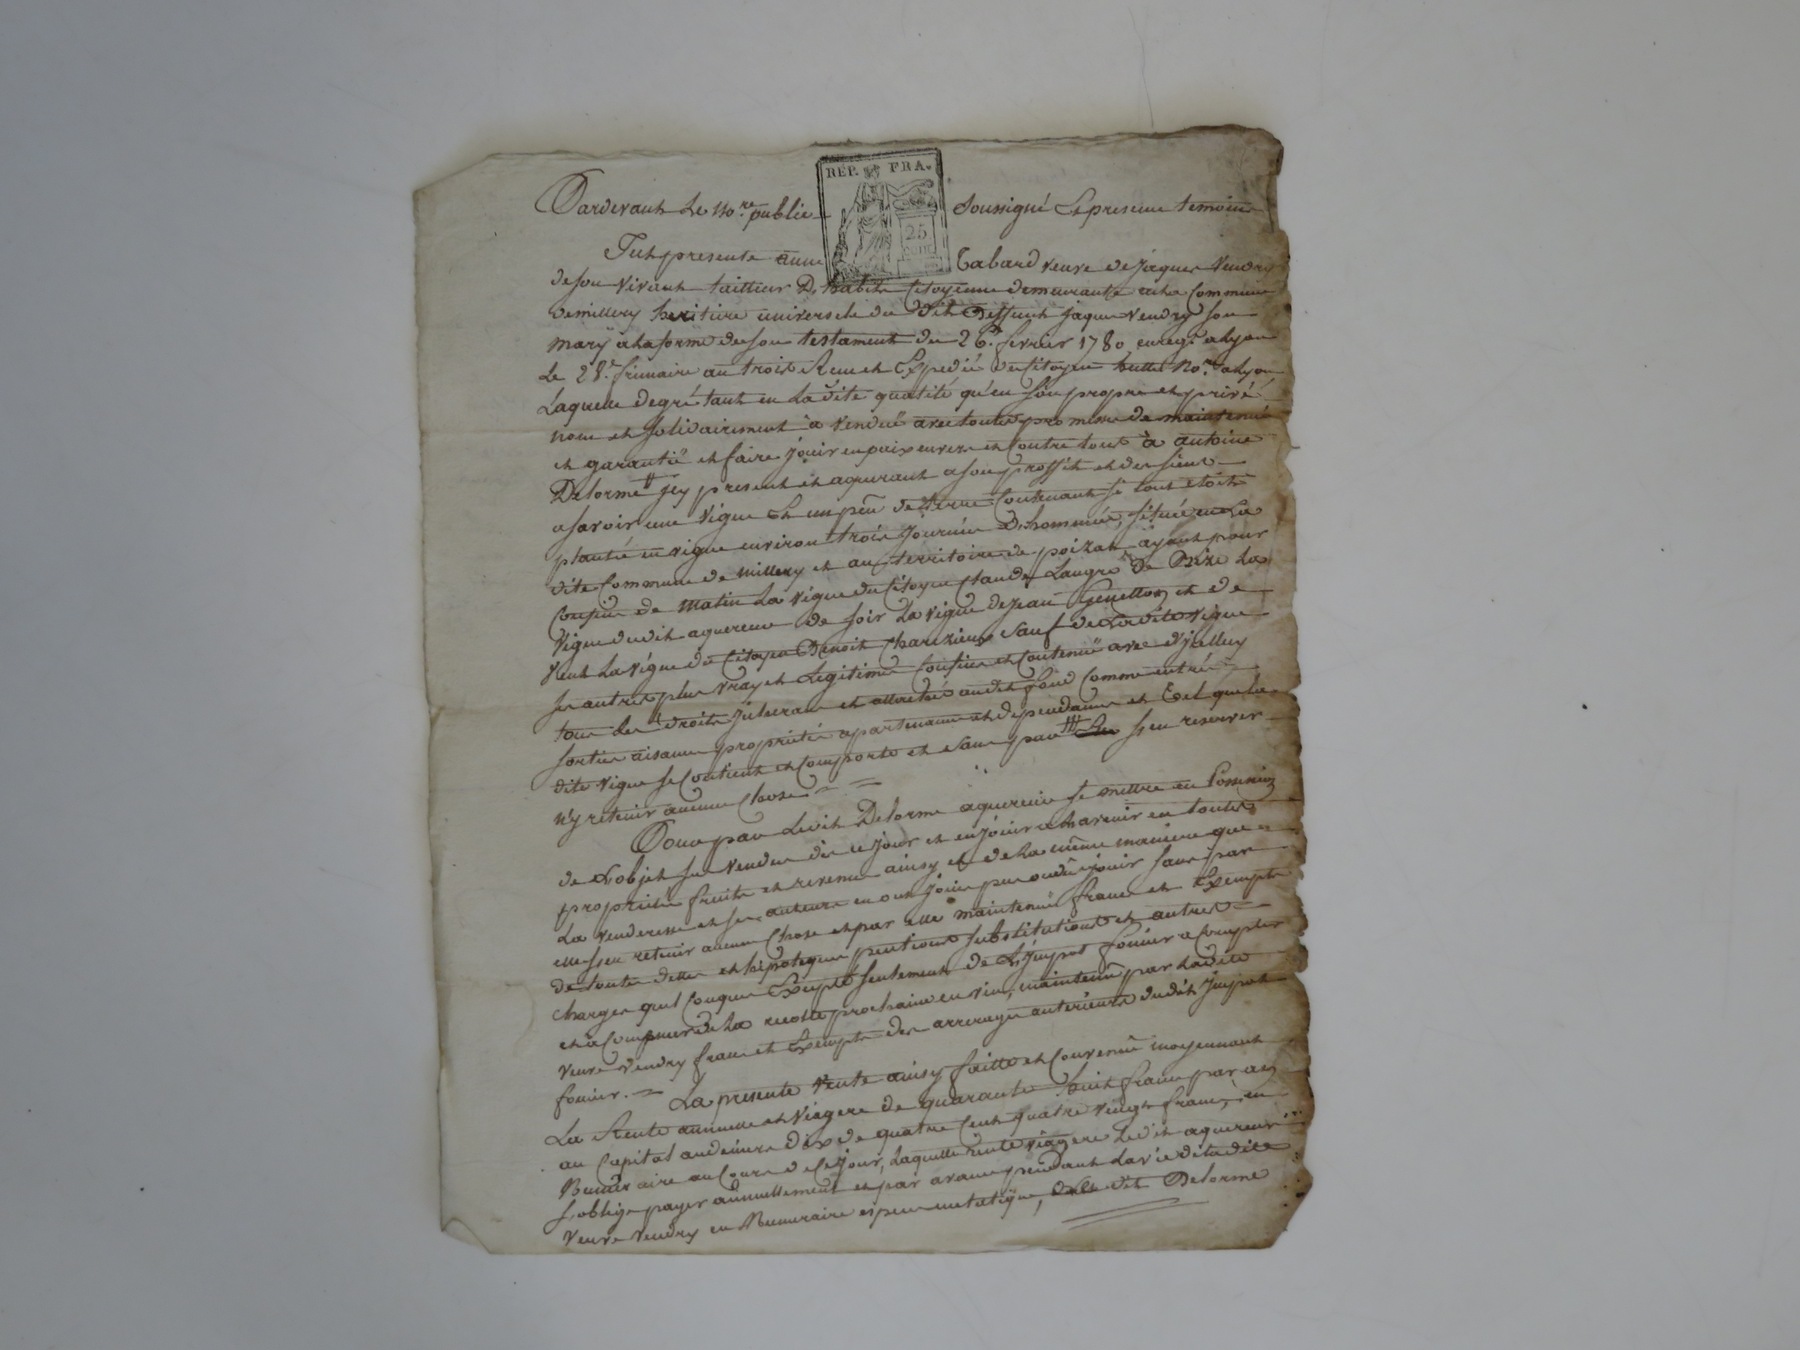 RÉP. FRA.
25
Pardevant Le No.re public soussigné Et presence temoins
Fut presente anne Tabard veuve de Jaques Vendry
de son vivant tailleur D. habits Citoyenne demeurante en la Commune
de millery heritiere universelle du dit Deffunt jaques vendry son
mary a la forme de son testament du 26. fevrier 1780 enreg.é a lyon
Le 28.e frimaire an trois Recu et Expedié du Citoyen No.re a lyon
Laquelle de gré tant en La dite qualité qu'en son propre et privé
nom et solidairement à vendu avec toutte promesse de maintenue
et garantie et faire jouir en paix envers et Contre tous à antoine
Delorme jcy present et aquerant a son proffit et des siens
a savoir une vigne Et un peu de terre Contenant si tout etoit
planté en vigne environ trois journées D. hommées, située en La
dite Commune de millery et au territoire de poizat ayant pour
Confins de matin La vigne du Citoyen Claude de Bize La
vigne dudit aquereur de soir La vigne de Jean et de
vent La vigne du Citoyen Benoit Charezieux sauf de La dite vigne
ses autres plus vrays et Legitimes Confins et Contenue avec
tous Les droits et attachés audit fond Comme entrée
sorties aisances proprietés apartenances et dependances et tel que La
dite vigne se Contient et Comporte et sans par s'en reserver
n'y retenir aucune Chose
Pour par Ledit Delorme aquereur se mettre en Possession
de L'objet su vendu dès ce jour et en jouir a L'avenir en toutes
proprieté fruits et revenus ainsy et de La même maniere que
La venderesse et ses auteurs en ont joui pu ou dû jouir sans par
elle s'en retenir aucune Chose et par elle maintenue franc et Exempte
de toutes dettes et hipoteques pentions substitutions et autres
Charges quel Conques Excepté seulement de L'jmpot foncier a Compter
et a Compter de La recolte prochaine en vin, maintenu par Ladite
veuve vendry franc et Exempte des arrerages anterieurs dudit jmpot
foncier. La presente vente ainsy faitte et Convenue moyennant
La Rente annuelle et viagere de quarante huit francs par an
au Capital au denier Dix de quatre Cent quatre vingt francs, en
Numeraire au Cours de Ce jour, Laquelle rente viagere Ledit aquereur
s'oblige payer annuellement et par avance pendant La vie de la dite
veuve vendry en Numeraire espece metalique, dit Delorme